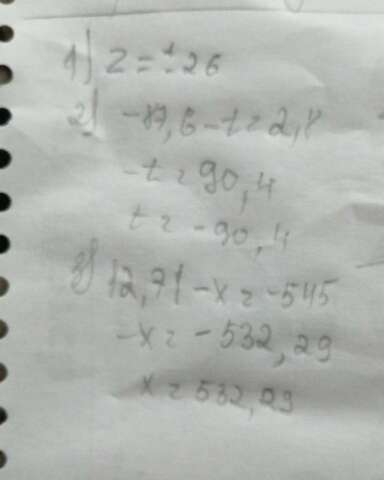 1) z = ± 26
2) -87,6 - t = 2,8
-t = 90,4
t = -90,4
3) 12,71 - x = -545
-x = -532,29
x = 532,29